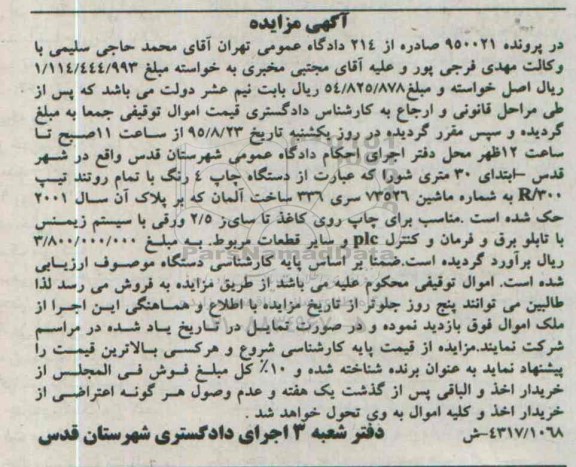 آگهی مزایده
در پرونده ۹۵۰۰۲۱ صادره از ۲۱۴ دادگاه عمومی تهران آقای محمد حاجی سلیمی با
وکالت مهدی فرجی پور و علیه آقای مجتبی مخبری به خواسته مبلغ ۱/۱۱۴/۴۴۴/۹۹۳
ریال اصل خواسته و مبلغ ۵۴/۸۲۵/۸۷۸ ریال بابت نیم عشر دولت می باشد که پس از
طی مراحل قانونی و ارجاع به کارشناس دادگستری قیمت اموال توقیفی جمعا به مبلغ
گردیده و سپس مقرر گردیده در روز یکشنبه تاریخ ۹۵/۸/۲۳ از ساعت ۱۱صبح تا
ساعت ۱۲ظهر محل دفتر اجرای احکام دادگاه عمومی شهرستان قدس واقع در شهر
قدس –ابتدای ۳۰ متری شورا که عبارت از دستگاه چاپ ٤ رنگ با تمام روتند تیپ
R/۳۰۰ به شماره ماشین ۷۳۵۲۶ سری ۳۳۶ ساخت آلمان که بر پلاک آن سال ۲۰۰۱
حک شده است .مناسب برای چاپ روی کاغذ تا سای‌ز ۲/۵ ورقی با سیستم زیمنس
با تابلو برق و فرمان و کنترل plc و سایر قطعات مربوط. به مبلغ ۳/۸۰۰/۰۰۰/۰۰۰
ریال برآورد گردیده است.ضمنا بر اساس پایه کارشناسی دستگاه موصوف ارزیابی
شده است. اموال توقیفی محکوم علیه می باشد از طریق مزایده به فروش می رسد لذا
طالبین می توانند پنج روز جلوتر از تاریخ مزایده با اطلاع و هماهنگی این اجرا از
ملک اموال فوق بازدید نموده و در صورت تمایل در تاریخ یاد شده در مراسم
شرکت نمایند.مزایده از قیمت پایه کارشناسی شروع و هرکسی بالاترین قیمت را
پیشنهاد نماید به عنوان برنده شناخته شده و ۱۰٪ کل مبلغ فوش فی المجلس از
خریدار اخذ و الباقی پس از گذشت یک هفته و عدم وصول هر گونه اعتراضی از
خریدار اخذ و کلیه اموال به وی تحول خواهد شد
۴۳۱۷/۱۰۶۸–ش دفتر شعبه ۳ اجرای دادگستری شهرستان قدس
ParsNamadData